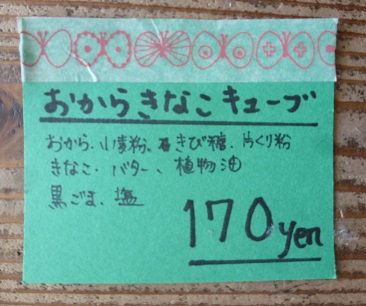 おからきなこキューブ
おから、小麦粉、きび糖、片くり粉
きなこ、バター、植物油
黒ごま、塩
170yen